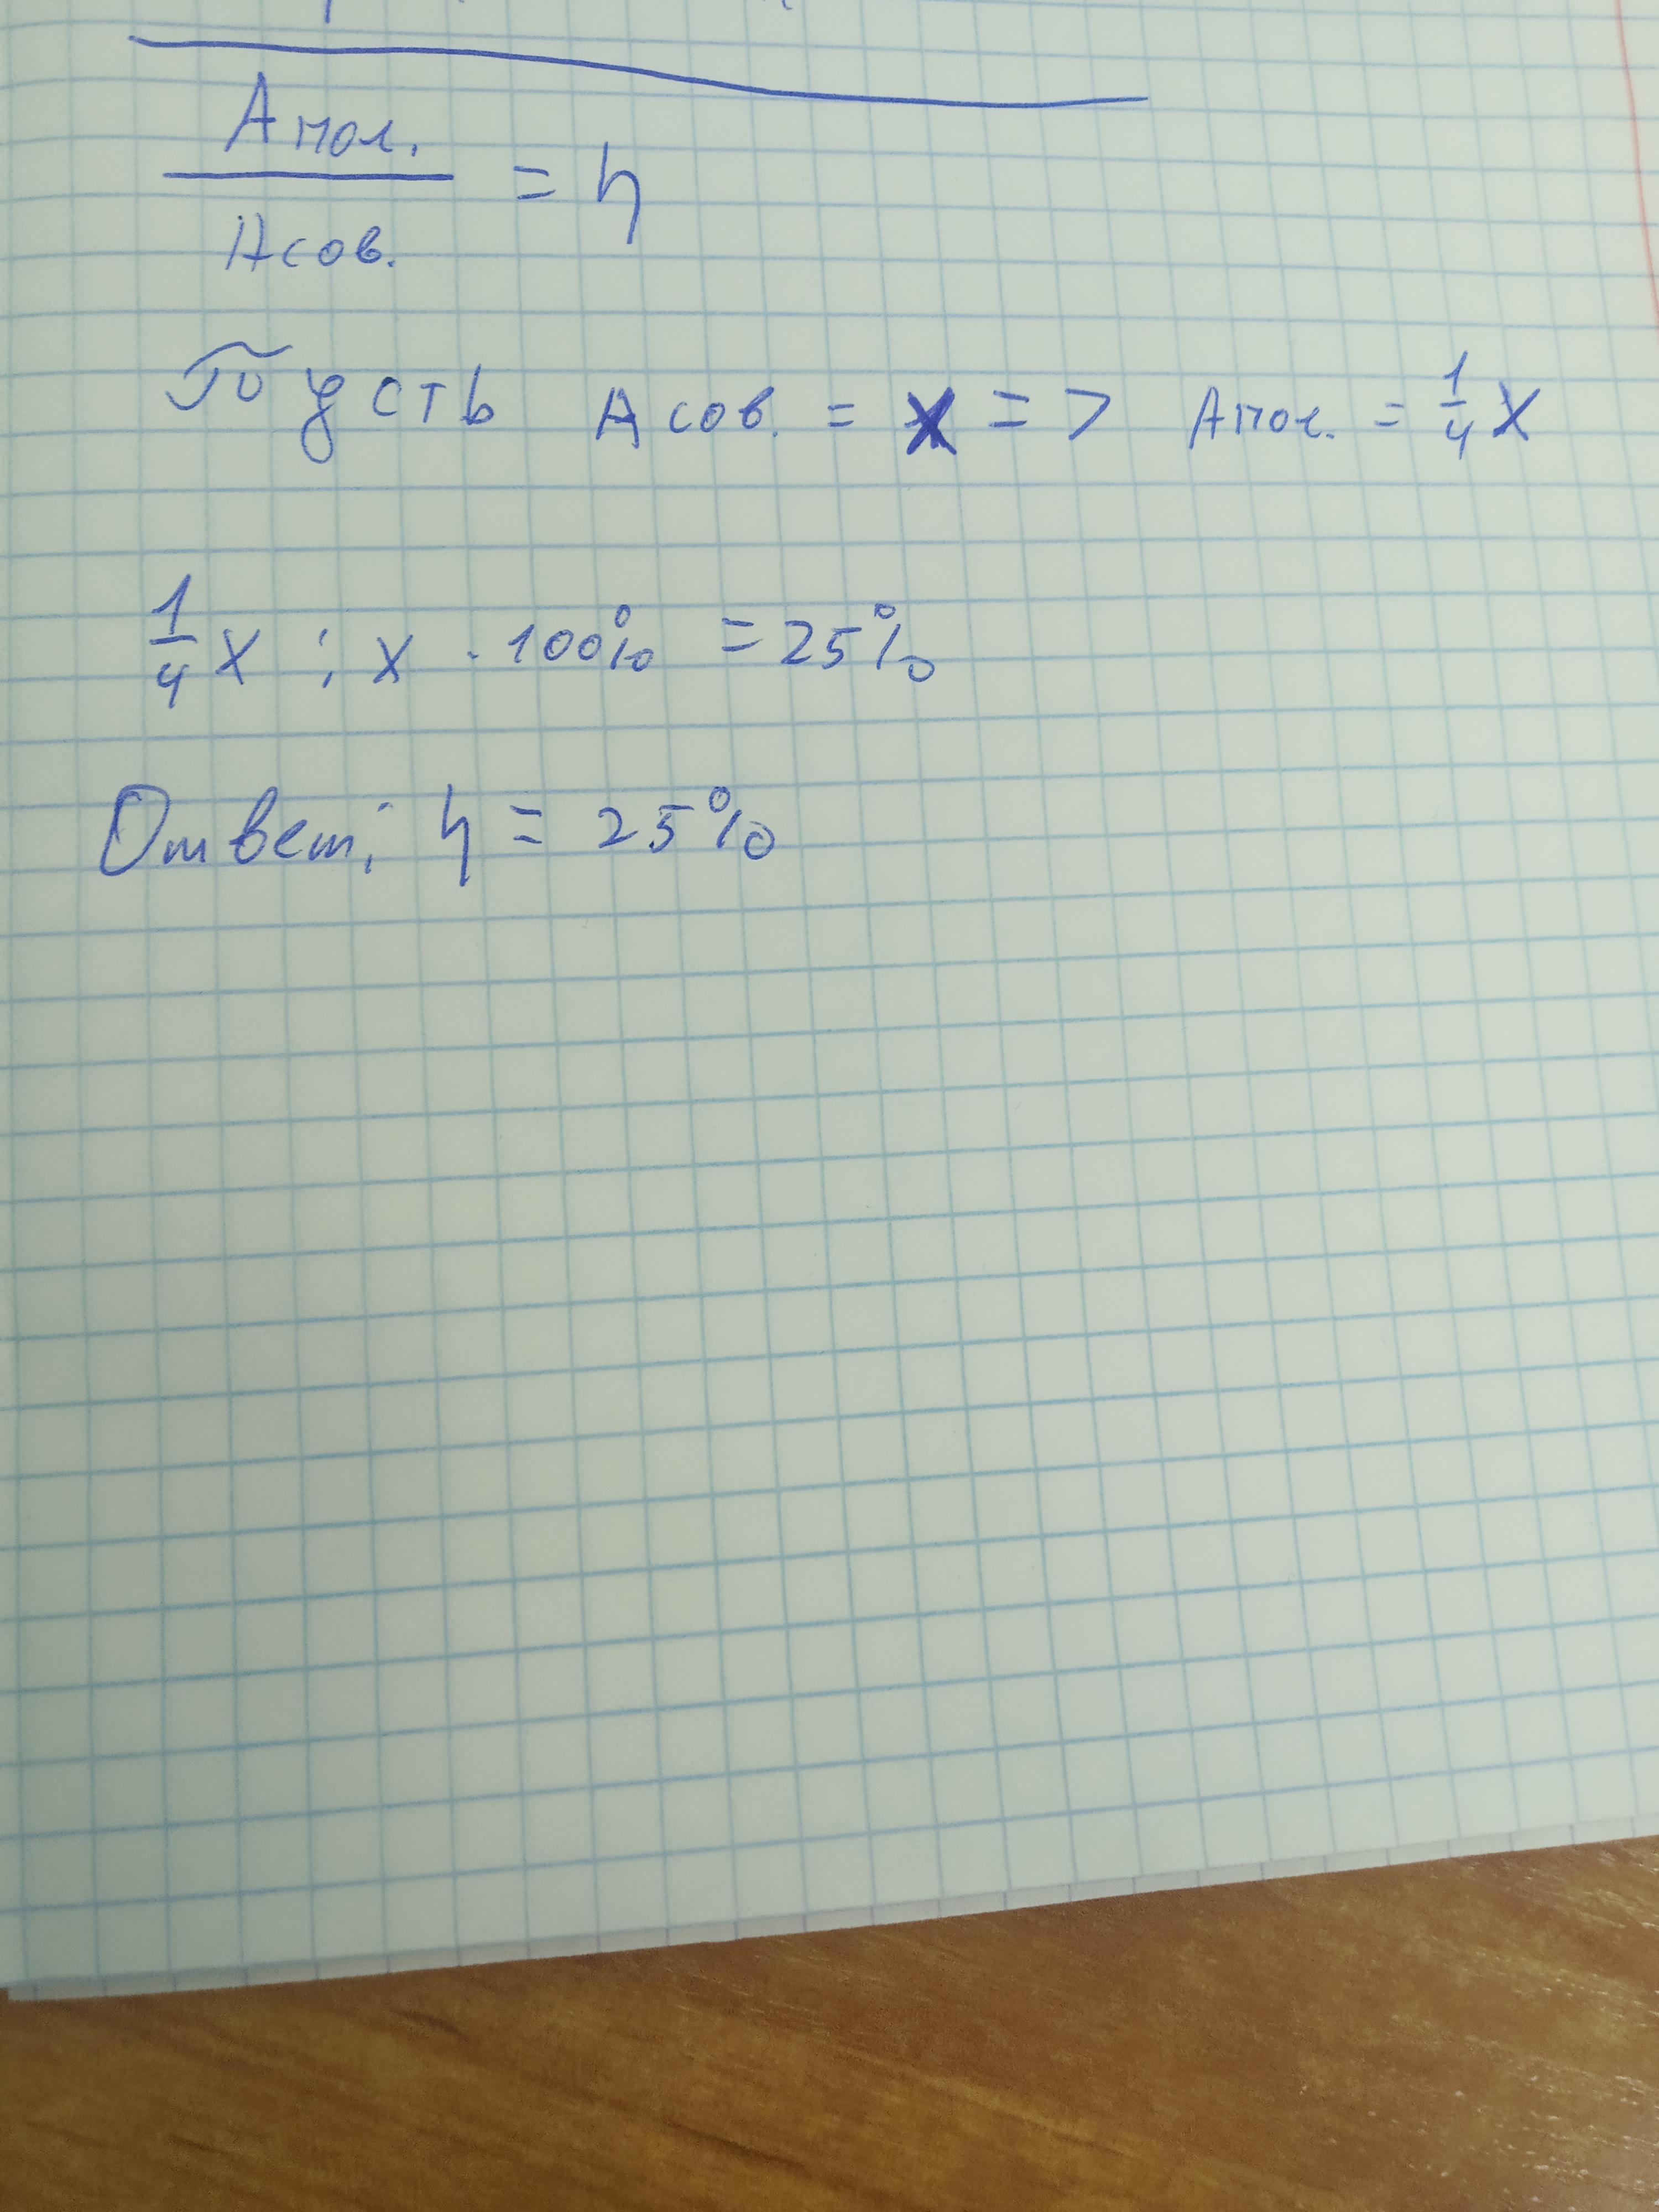 Апол.
Асов.
= η
Пусть Асов. = x => Апол. = 1/4 x
1/4 x : x · 100% = 25%
Ответ: η = 25%